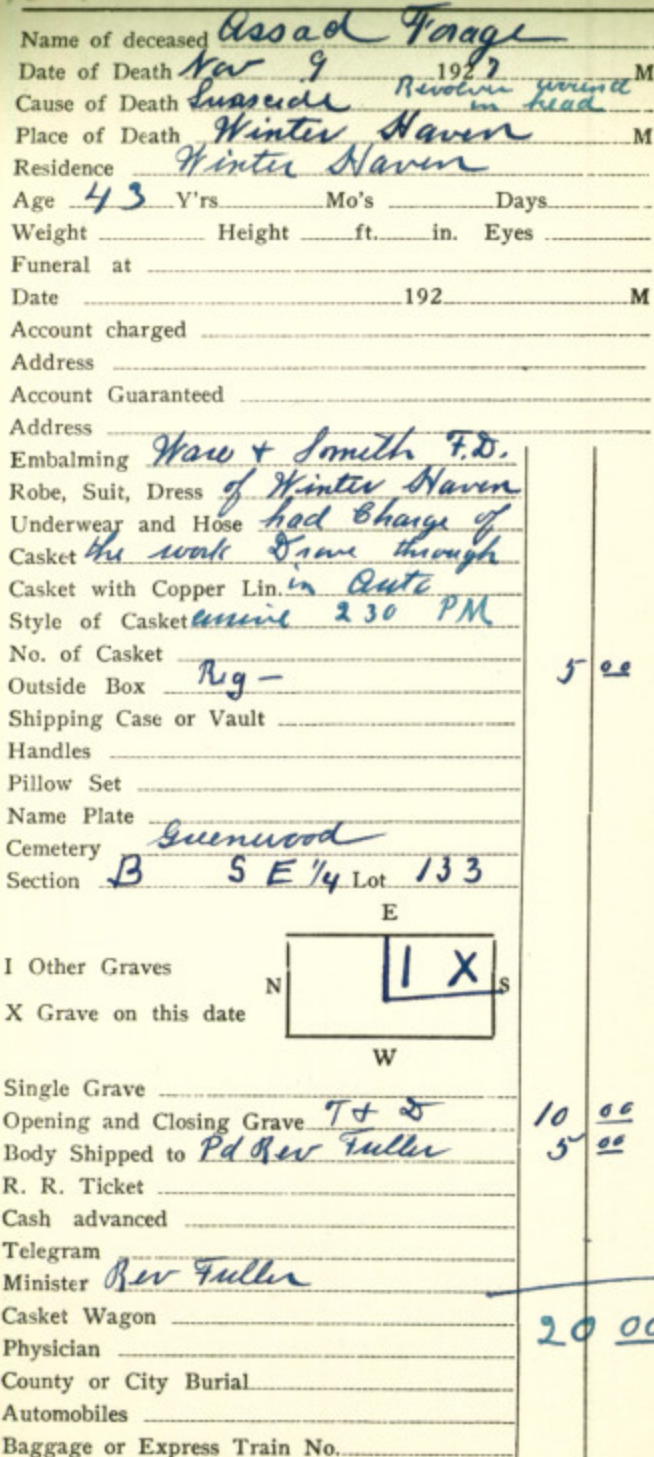 Name of deceased Assad Forage
Date of Death Nov 9 1927 M
Cause of Death Suascide Revolver wound in head
Place of Death Winter Haven M
Residence Winter Haven
Age 43 Y'rs Mo's Days
Weight Height ft. in. Eyes
Funeral at
Date 192 M
Account charged
Address
Account Guaranteed
Address
Embalming Ware + Smith F.D.
Robe, Suit, Dress of Winter Haven
Underwear and Hose had Charge of
Casket the work Drove through
Casket with Copper Lin. in Auto
Style of Casket arrive 2 30 PM
No. of Casket
Outside Box Reg — 5 00
Shipping Case or Vault
Handles
Pillow Set
Name Plate
Cemetery Greenwood
Section B S E 1/4 Lot 133
E
I Other Graves
N I X S
X Grave on this date
W
Single Grave
Opening and Closing Grave T + D 10 00
Body Shipped to Pd Rev Fuller 5 00
R. R. Ticket
Cash advanced
Telegram
Minister Rev Fuller
Casket Wagon 20 00
Physician
County or City Burial
Automobiles
Baggage or Express Train No.